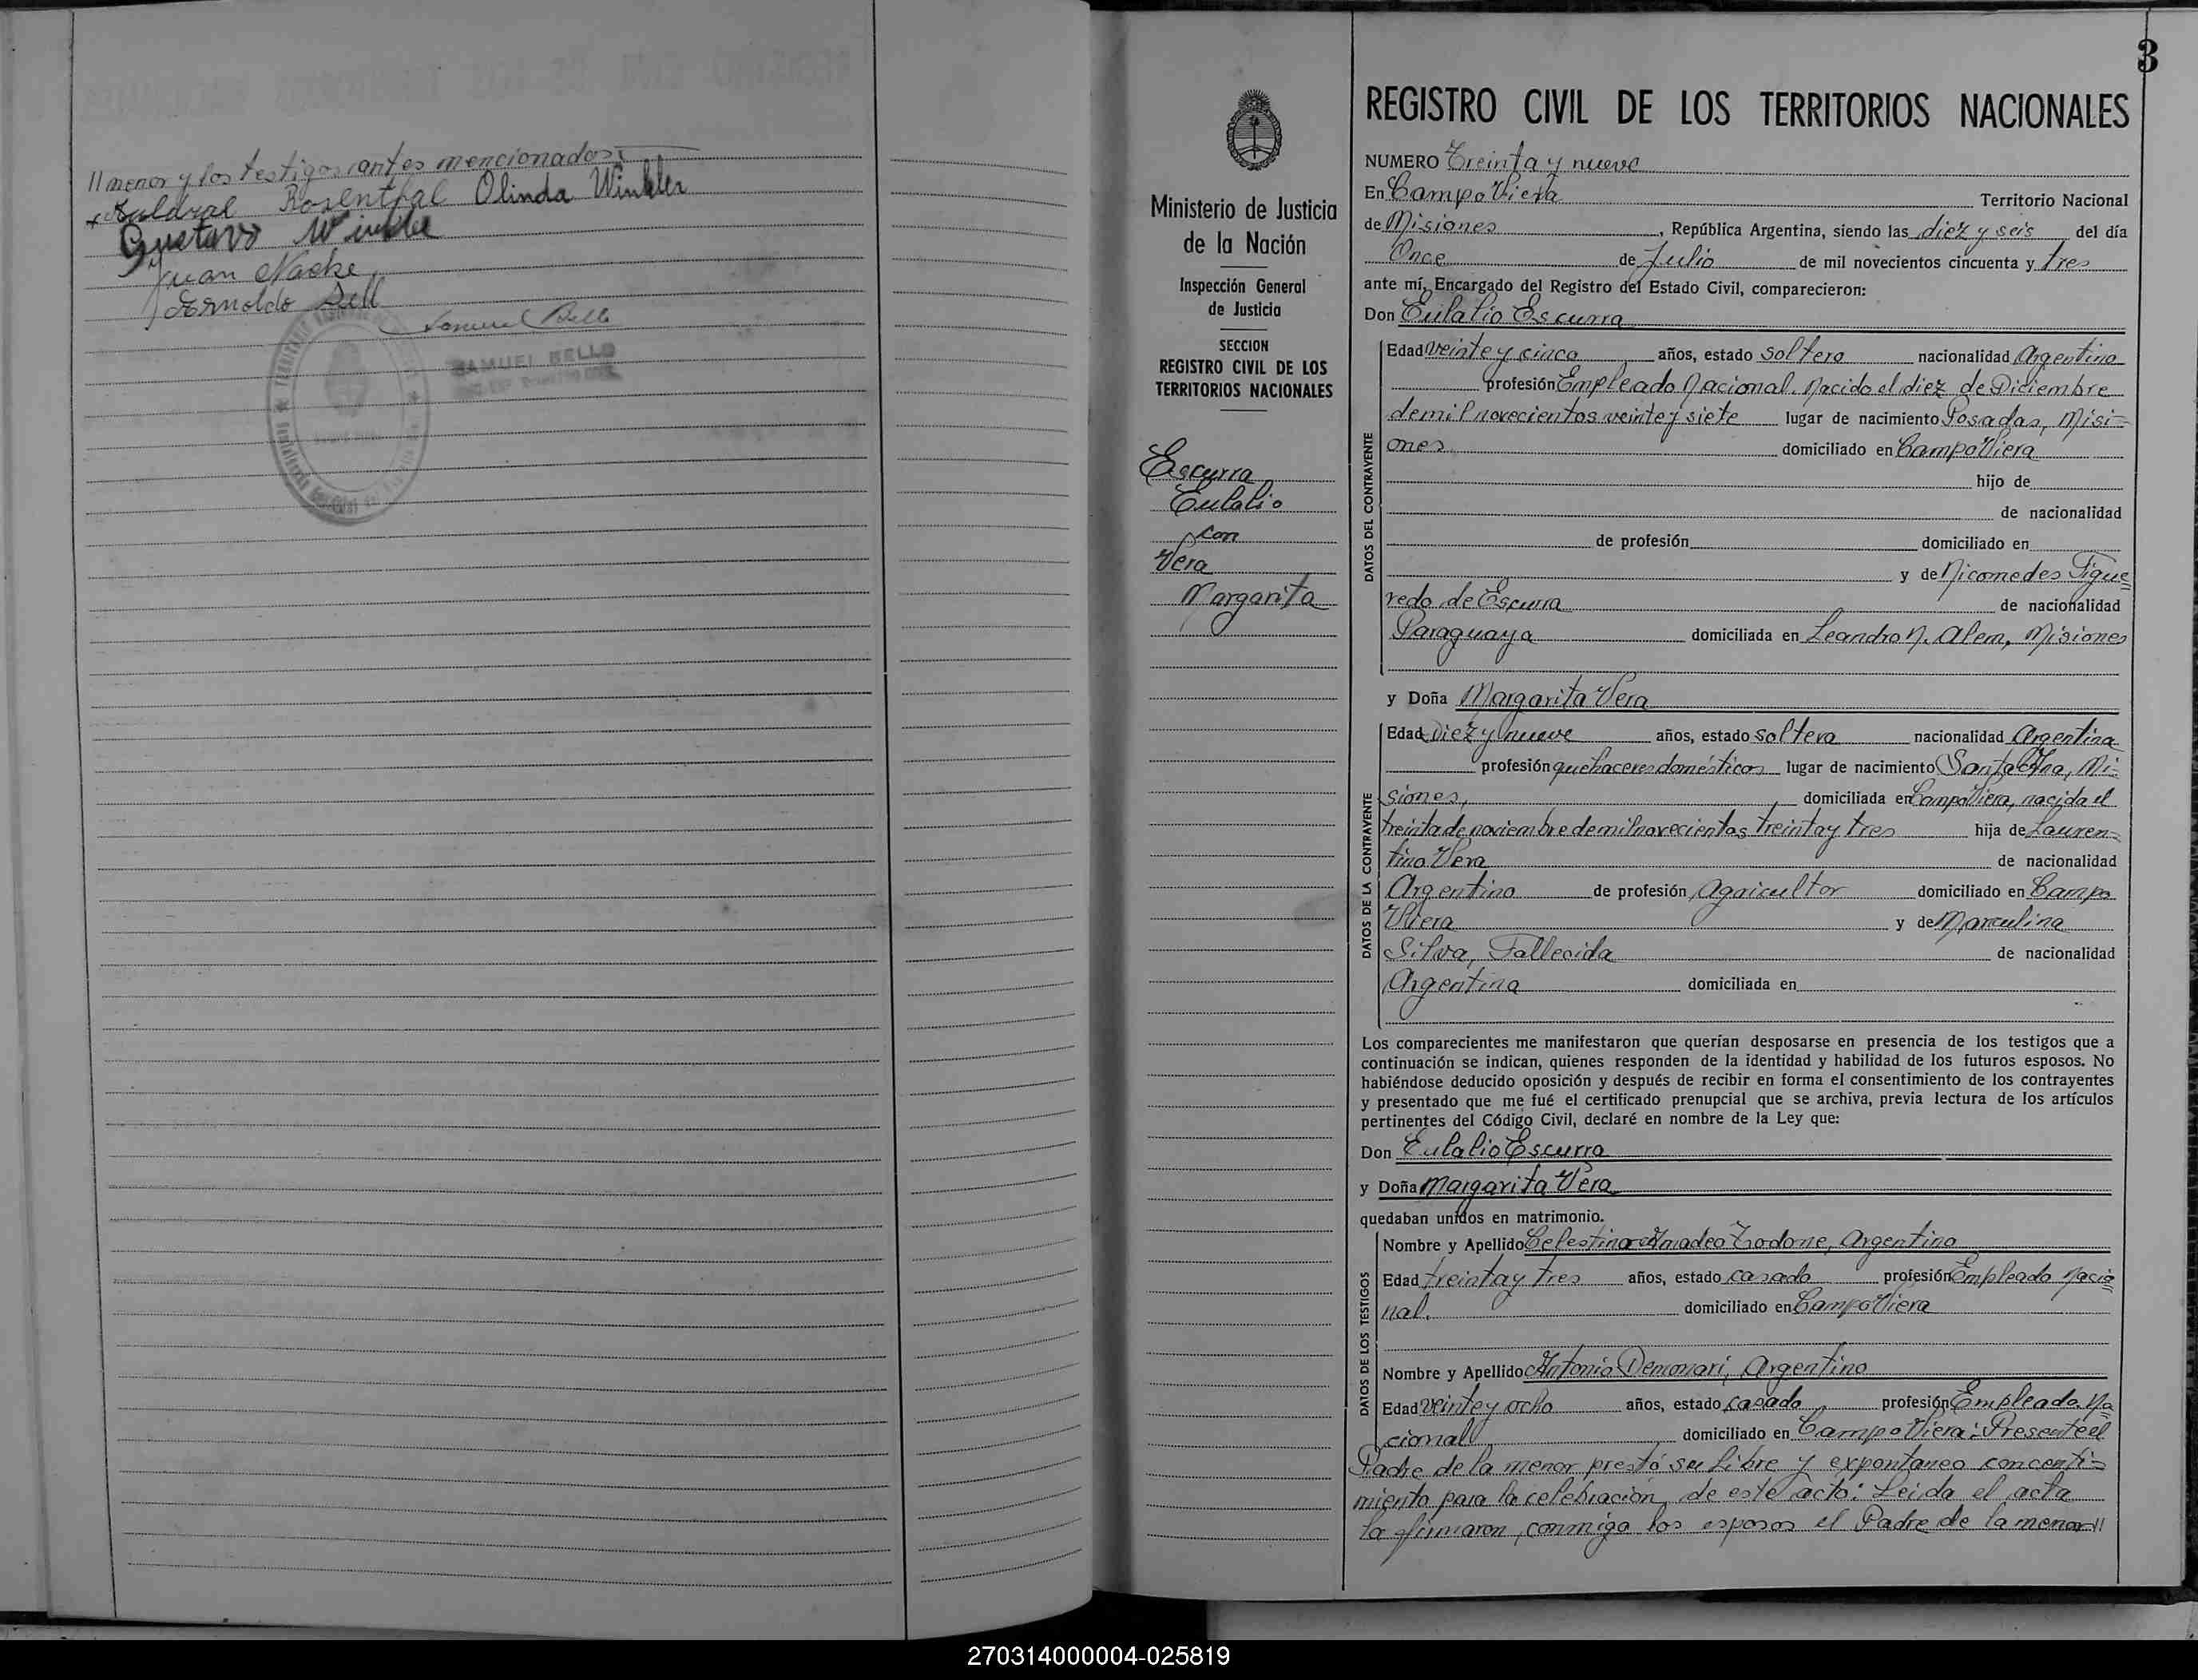 // menor y los testigos antes mencionados:
Rosenthal Olinda Winkler
Gustavo Winkler
Juan Nacke
Arnoldo Sell
Samuel Bello
SAMUEL BELLO
3
Ministerio de Justicia
de la Nación
Inspección General
de Justicia
SECCION
REGISTRO CIVIL DE LOS
TERRITORIOS NACIONALES
Escurra
Eulalio
con
Vera
Margarita
REGISTRO CIVIL DE LOS TERRITORIOS NACIONALES
NUMERO Treinta y nueve
En Campo Viera Territorio Nacional
de Misiones, República Argentina, siendo las diez y seis del día
Once de Julio de mil novecientos cincuenta y tres
ante mí, Encargado del Registro del Estado Civil, comparecieron:
Don Eulalio Escurra
DATOS DEL CONTRAYENTE
Edad veinte y cinco años, estado soltero nacionalidad Argentino
profesión Empleado Nacional. Nacido el diez de Diciembre
de mil novecientos veinte y siete lugar de nacimiento Posadas, Misi=
ones domiciliado en Campo Viera
hijo de
de nacionalidad
de profesión domiciliado en
y de Nicomedes Figue=
redo de Escurra de nacionalidad
Paraguaya domiciliada en Leandro N. Alem, Misiones
y Doña Margarita Vera
DATOS DE LA CONTRAYENTE
Edad Diez y nueve años, estado soltera nacionalidad Argentina
profesión quehaceres domésticos lugar de nacimiento Santa Ana, Mi=
siones, domiciliada en Campo Viera, nacida el
treinta de noviembre de mil novecientos treinta y tres hija de Lauren=
tino Vera de nacionalidad
Argentino de profesión Agricultor domiciliado en Campo
Viera y de Marculina
Silva, Fallecida de nacionalidad
Argentina domiciliada en
Los comparecientes me manifestaron que querían desposarse en presencia de los testigos que a
continuación se indican, quienes responden de la identidad y habilidad de los futuros esposos. No
habiéndose deducido oposición y después de recibir en forma el consentimiento de los contrayentes
y presentado que me fué el certificado prenupcial que se archiva, previa lectura de los artículos
pertinentes del Código Civil, declaré en nombre de la Ley que:
Don Eulalio Escurra
y Doña Margarita Vera
quedaban unidos en matrimonio.
DATOS DE LOS TESTIGOS
Nombre y Apellido Celestino Amadeo Zodone, Argentino
Edad treinta y tres años, estado casado profesión Empleado Nacio=
nal. domiciliado en Campo Viera
Nombre y Apellido Antonio Demonari, Argentino
Edad veinte y ocho años, estado casado profesión Empleado Na=
cional domiciliado en Campo Viera: Presente el
Padre de la menor prestó su libre y expontaneo concenti=
miento para la celebración de este acto: Leida el acta
la firmaron conmigo los esposos el Padre de la menor //
270314000004-025819